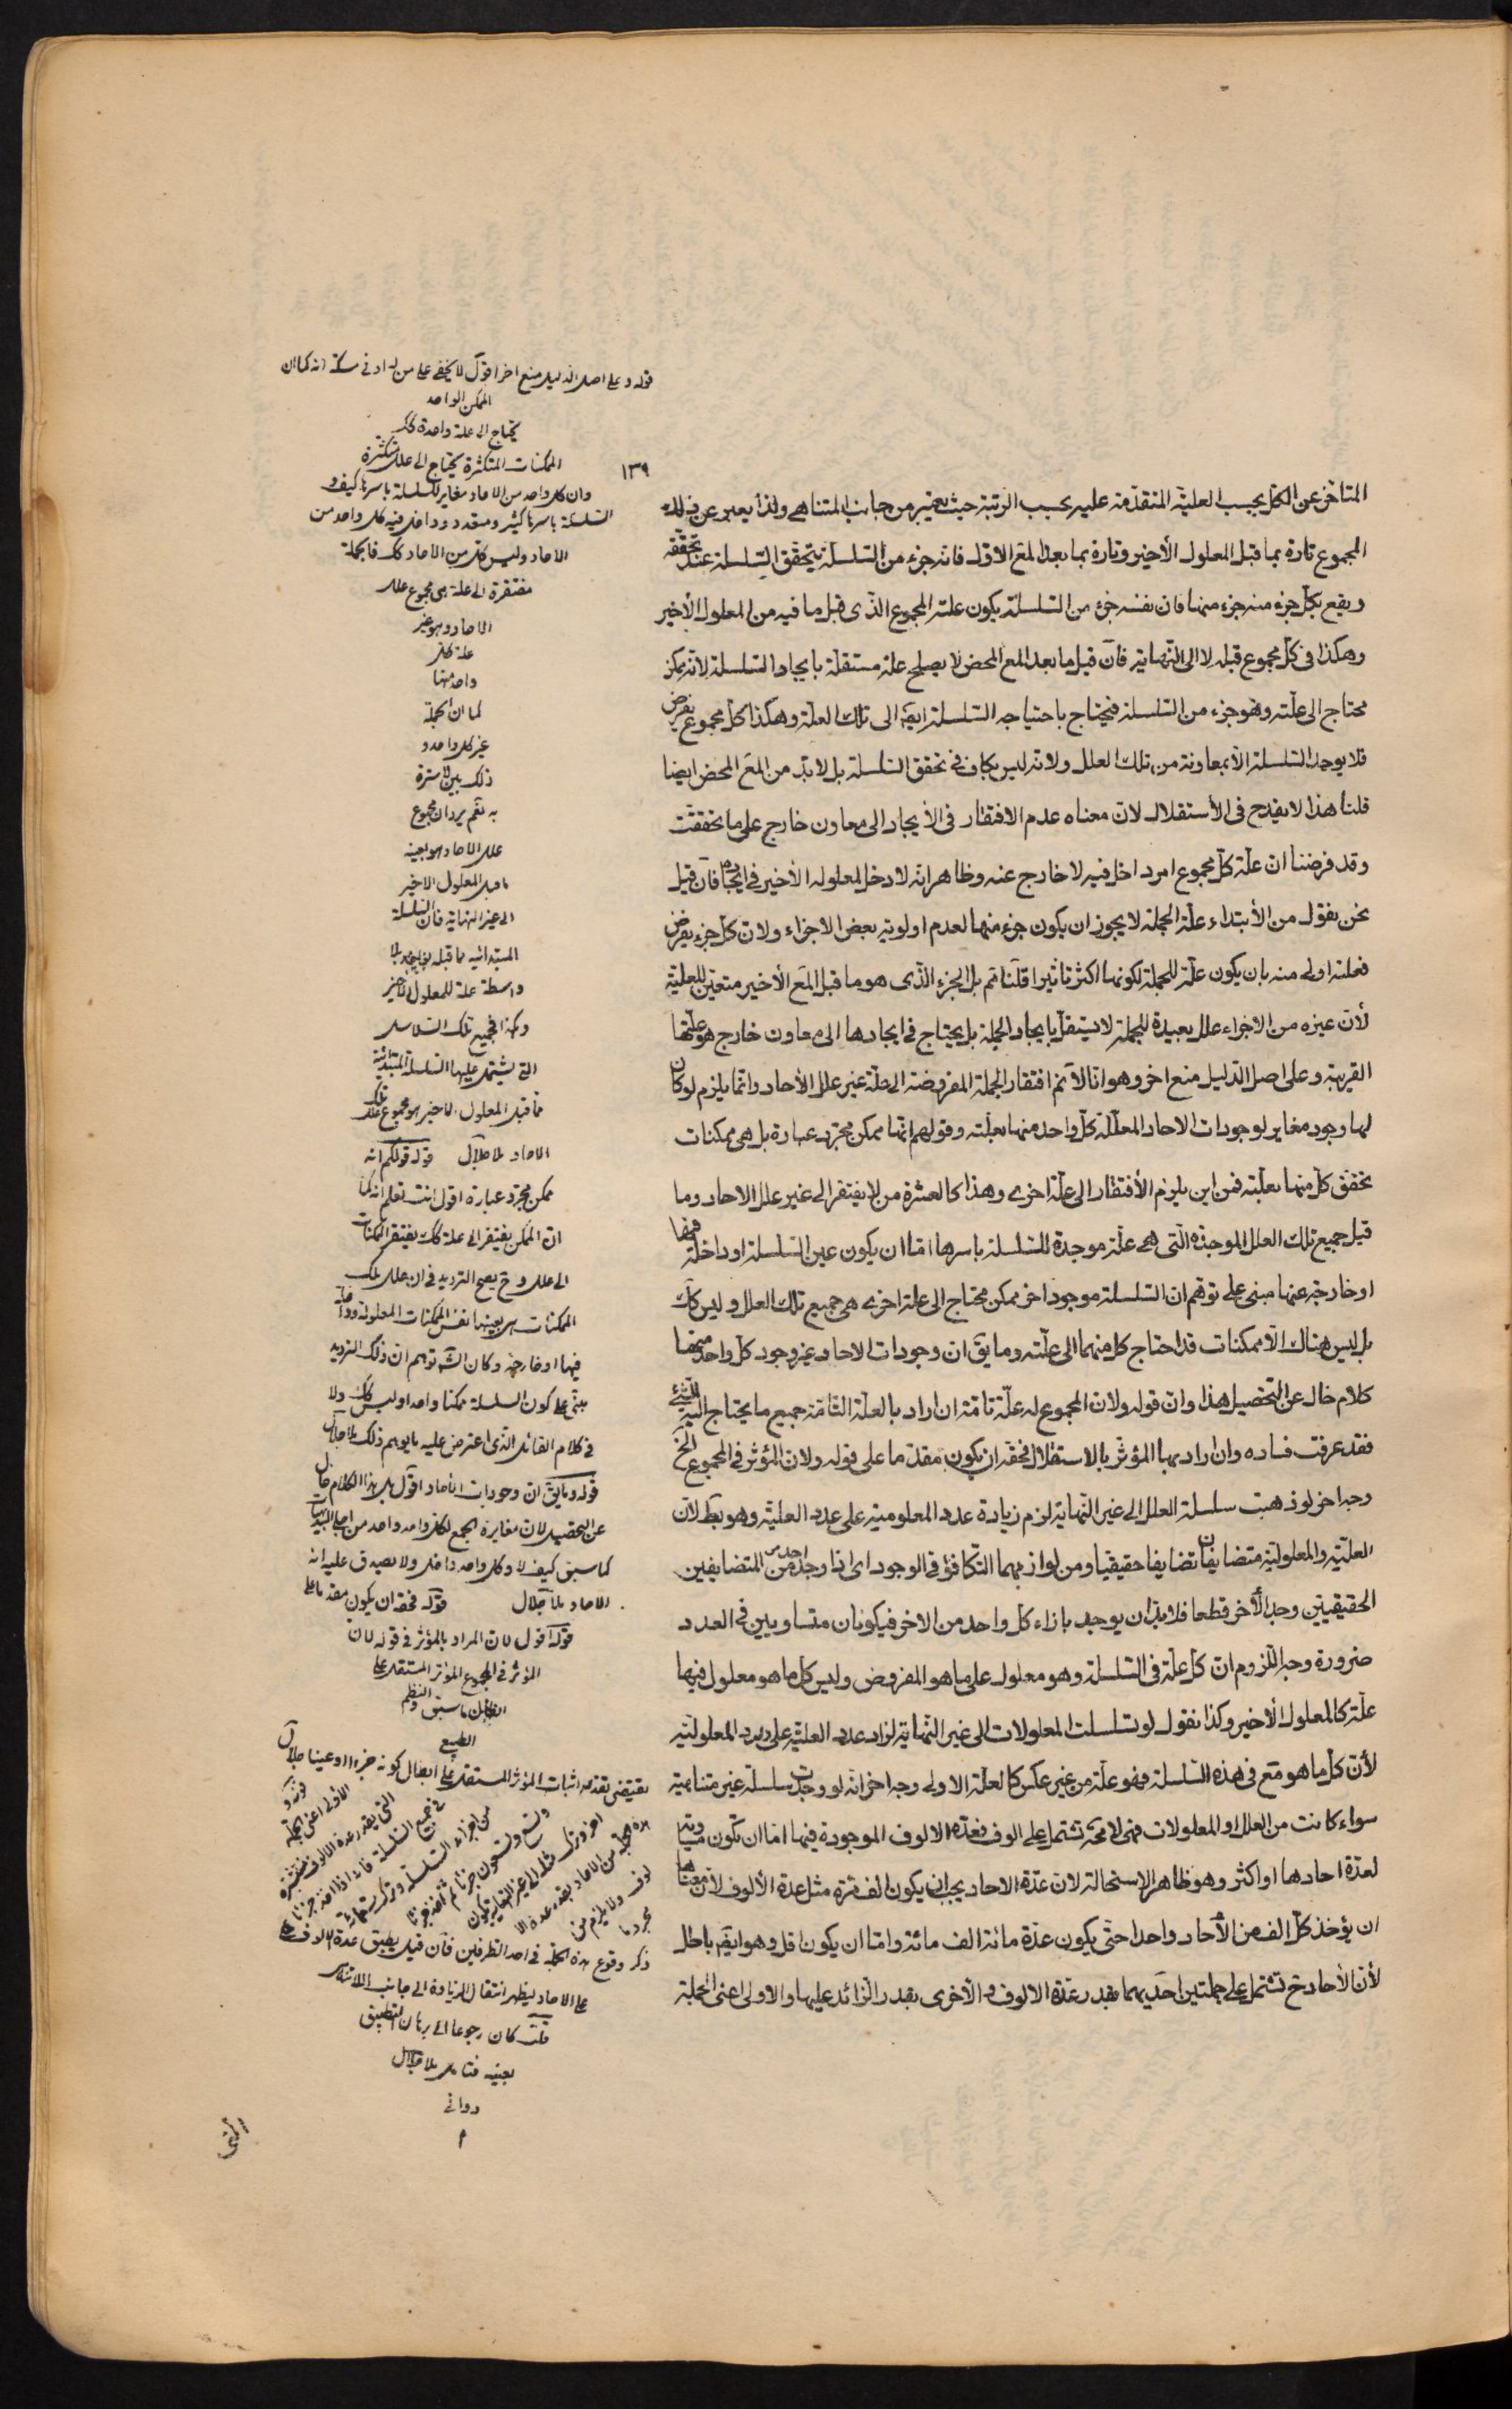 ١٣٩
المتأخر عن الكل بحسب العلية المتقدمة عليه بحسب الرتبة حيث يعتبر من جانب المتناهي ولذا يعبر عن ذلك
المجموع تارة بما قبل المعلول الأخير وتارة بما بعد المع الاول فانه جزء من السلسلة يتحقق السلسلة عند تحققه
ويقع بكل جزء منه جزء منها فان نفسه جزء من السلسلة يكون علته المجموع الذى قبل ما فيه من المعلول الأخير
وهكذا فى كل مجموع قبله لا الى النهاية فان قيل ما بعد المع المحض لا يصلح علة مستقلة بايجاد السلسلة لانه ممكن
محتاج الى علته وهو جزء من السلسلة فيحتاج باحتياجه السلسلة ايضا الى تلك العلة وهكذا كل مجموع يفرض
فلا يوجد السلسلة الا بمعاونة من تلك العلل ولانه ليس بكاف فى تحقق السلسلة بل لابد من المع المحض ايضا
قلنا هذا لا يقدح فى الأستقلال لان معناه عدم الافتقار فى الأيجاد الى معاون خارج على ما تحققت
وقد فرضنا ان علة كل مجموع امر داخل فيه لا خارج عنه وظاهر انه لا دخل لمعلوله الأخير فى ايجاده فان قيل
نحن نقول من الأبتداء علة الجملة لا يجوز ان يكون جزء منها لعدم اولوية بعض الاجزاء ولان كل جزء يفرض
فعلته اولى منه بان يكون علة للجملة لكونها اكثر تاثيرا قلنا تم بل الجزء الذى هو ما قبل المع الأخير متعين للعلية
لأن غيره من الاجزاء علل بعيدة للجملة لا يستقل بايجاد الجملة بل يحتاج فى ايجادها الى معاون خارج هو علتها
القريبة وعلى اصل الدليل منع اخر وهو انا لا نم افتقار الجملة المفروضة الى علة غير علل الأحاد وانما يلزم لو كان
لها وجود مغاير لوجودات الاحاد المعللة كل واحد منها بعلته وقولهم انها ممكن مجرد عبارة بل هى ممكنات
تحقق كل منها بعلته فمن اين يلزم الأفتقار الى علة اخرى وهذا كالعشرة من لا يفتقر الى غير علل الاحاد وما
قيل جميع تلك العلل الموجدة التى هى علة موجدة للسلسلة باسرها اما ان يكون عين السلسلة او داخلة فيها
او خارجة عنها مبنى على توهم ان السلسلة موجود اخر ممكن محتاج الى علة اخرى هى جميع تلك العلل وليس كك
بل ليس هناك الا ممكنات قد احتاج كل منهما الى علته وما يق ان وجودات الاحاد غير وجود كل واحد منها
كلام خال عن التحصيل هذا وان قوله ولان المجموع له علة تامة ان اراد بالعلة التامة جميع ما يحتاج اليه الشئ
فقد عرفت فساده وان اراد بها المؤثر بالاستقلال فحقه ان يكون مقدما على قوله ولان المؤثر فى المجموع الخ
وجه اخر لو ذهبت سلسلة العلل الى غير النهاية لزم زيادة عدد المعلولية على عدد العلية وهو بط لان
العلية والمعلولية متضايفان تضايفا حقيقيا ومن لوازمهما التكافؤ فى الوجود اى اذا وجد احد من المتضايفين
الحقيقيين وجد الأخر قطعا فلابد ان يوجد بازاء كل واحد من الاخر فيكونان متساويين فى العدد
ضرورة وجه اللزوم ان كل علة فى السلسلة وهو معلول على ما هو المفروض وليس كل ما هو معلول فيها
علة كالمعلول الأخير وكذا نقول لو تسلسلت المعلولات الى غير النهاية لزاد عدد العلية على عدد المعلولية
لأن كل ما هو مع فى هذه السلسلة فهو علة من غير عكس كالعلة الاولى وجه اخر انه لو وجدت سلسلة غير متناهية
سواء كانت من العلل او المعلولات فهى لا محة تشتمل على الوف فعدة الالوف الموجودة فيها اما ان تكون مساوية
لعدة احادها او اكثر وهو ظاهر الاستحالة لان عدة الاحاد يجب ان يكون الف مرة مثل عدة الألوف لأن معناها
ان يؤخذ كل الف من الأحاد واحدا حتى يكون عدة مائة الف مائة واما ان يكون اقل وهو ايضا باطل
لأن الأحاد ح تشتمل على جملتين احديهما بقدر عدة الالوف والأخرى بقدر الزائد عليها والاولى اعنى الجملة
قوله وعلى اصل الدليل منع اخر اقول لا يخفى على من له ادنى مسكة انه كما ان
الممكن الواحد
يحتاج الى علة واحدة كك
الممكنات المتكثرة يحتاج الى علل متكثرة
وان كل واحد من الاحاد مغاير للسلسلة باسرها كيف و
السلسلة باسرها كثير ومتعدد وداخل فيه كل واحد من
الاحاد وليس كل من الاحاد كك فالجملة
مفتقرة الى علة هى مجموع علل
الاحاد وهو غير
علة كل
واحد منها
لما ان الجملة
غير كل واحد و
ذلك بين لا سترة
به نعم يرد ان مجموع
علل الاحاد هو بعينه
ما قبل المعلول الاخير
الى غير النهاية فان السلسلة
المبتدائية مما قبله
واسطة علة للمعلول الاخير
وكذا جميع تلك السلاسل
التى يشتمل عليها السلسلة المبتدائية
مما قبل المعلول الاخير هو مجموع علل تلك
الاحاد ملا جلال قوله قولكم انه
ممكن مجرد عبارة اقول انت تعلم انه كما
ان الممكن يفتقر الى علة كك يفتقر الممكنات
الى علل وح يصح الترديد فى ان علل تلك
الممكنات هى بعينها نفس الممكنات المعلولة او داخلة
فيها او خارجة وكان الش توهم ان ذلك الترديد
يبتنى على كون السلسلة ممكنا واحدا وليس كك ولا
فى كلام القائل الذى اعترض عليه ما يوهم ذلك ملا جلال
قوله وما يق ان وجودات الاحاد اقول بل هذا الكلام خال
عن التحصيل لان مغايرة الجمع لكل واحد واحد من اجلى البديهيات
كما سبق كيف لا وكل واحد داخل ولا يصدق عليه انه
الاحاد ملا جلال قوله فحقه ان يكون مقدما على
قوله اقول لان المراد بالمؤثر فى قوله لان
المؤثر فى المجموع المؤثر المستقل على
ما سبق والنظم
الطبيعى
يقتضى تقديم اثبات المؤثر المستقل على ابطال كونه جزءا او عينا جلال
ذكر وقوع هذه الجملة فى احد الطرفين فان قيل يطبق عدة الالوف على
على الاحاد ليظهر انتقال الزيادة الى جانب اللاتناهى
قلت كان رجوعا الى برهان التطبيق
بعينه فتامل ملا جلال
دوانى
التى